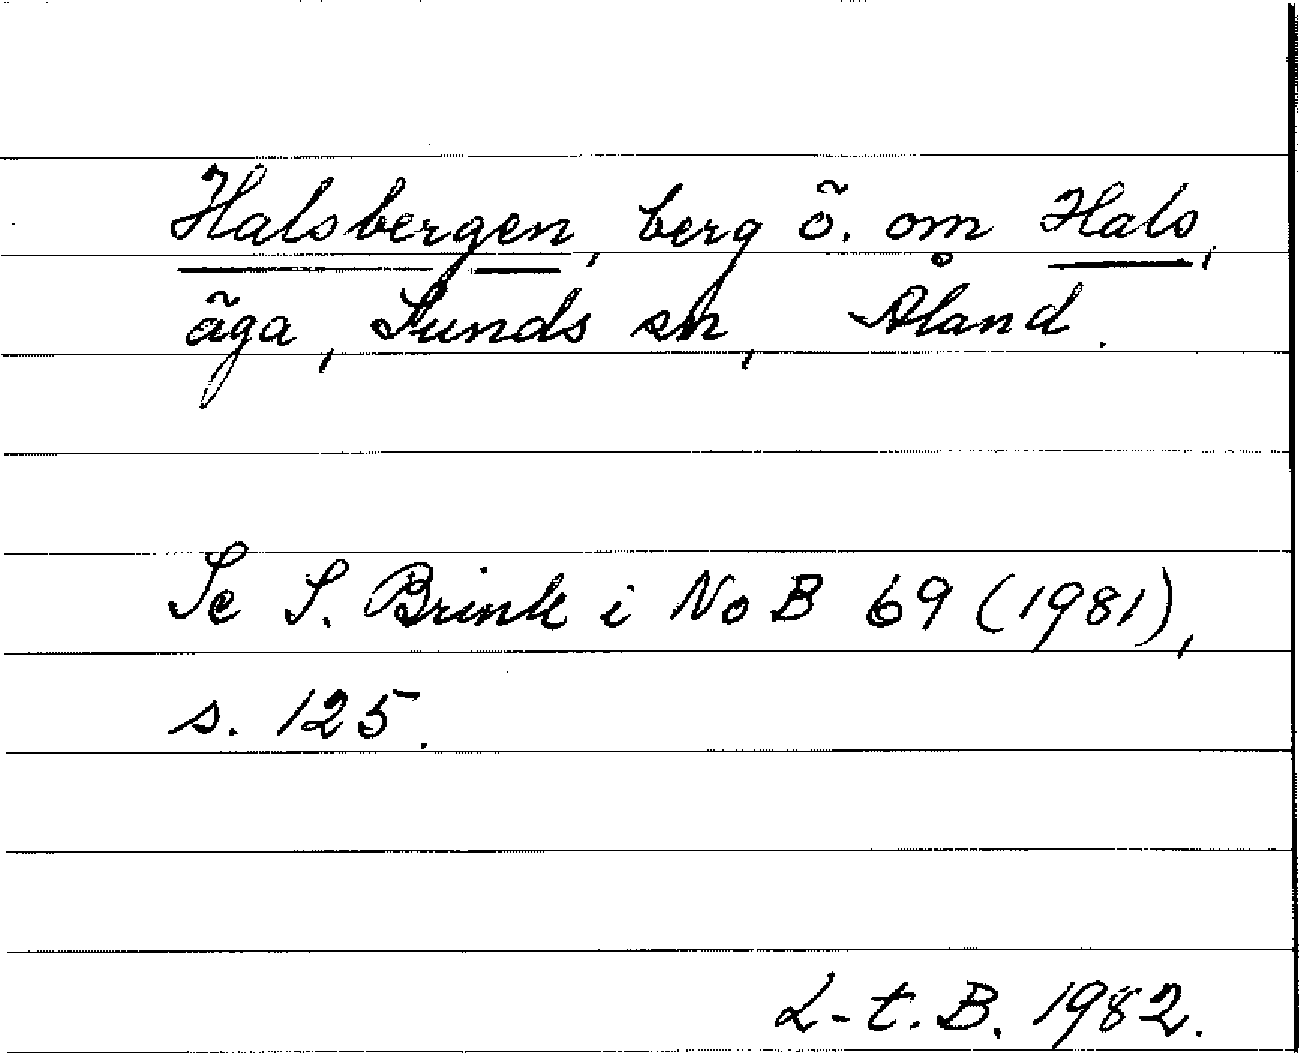 Halsbergen, berg ö. om Hals,
äga, Sunds sn, Åland.
Se S. Brink i NoB 69 (1981),
s. 125.
L-t. B. 1982.